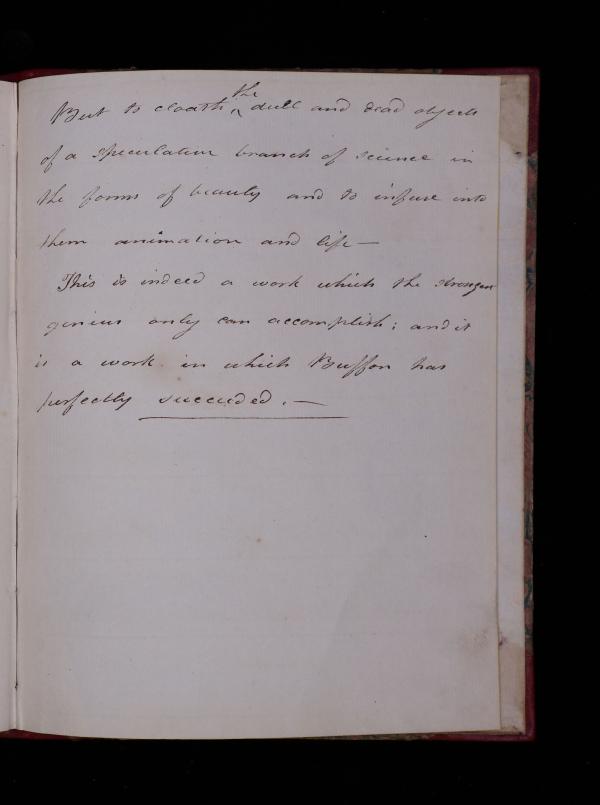 But to cloath the dull and dead objects
of a speculative branch of science in
the forms of beauty and to infuse into
them animation and life —
This is indeed a work which the stronger
genius only can accomplish; and it
is a work in which Buffon has
perfectly succeeded. —